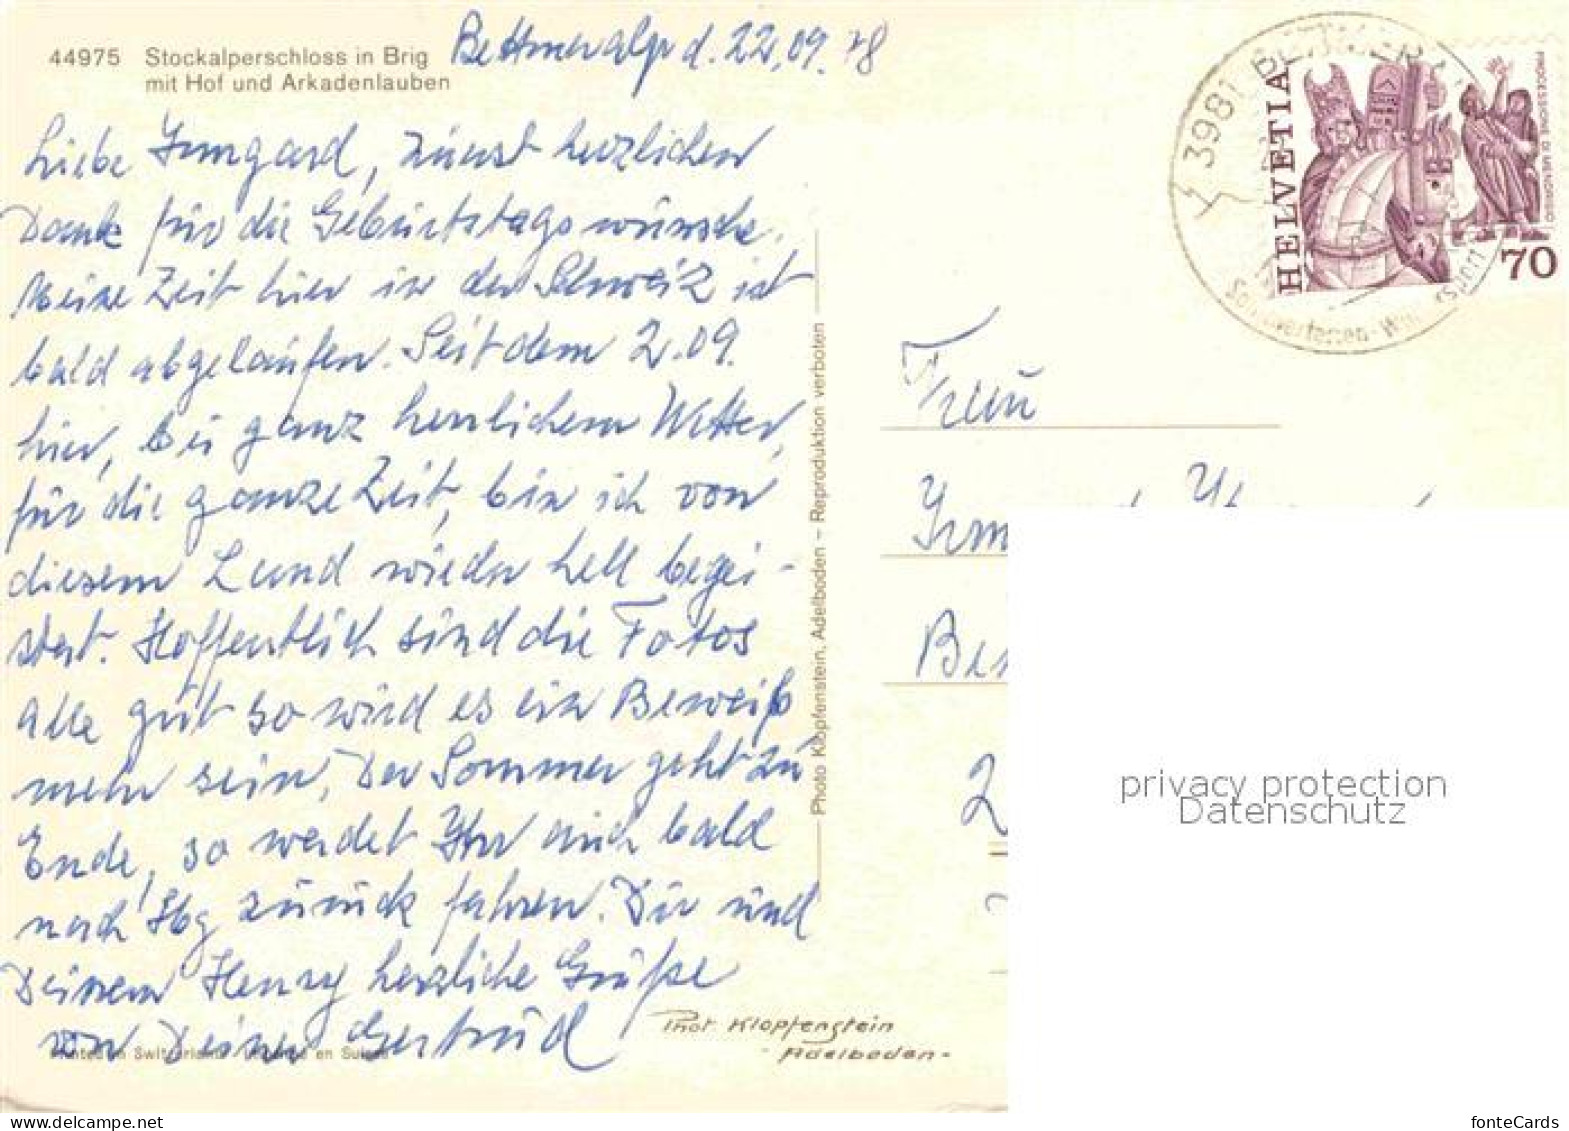 44975 Stockalperschloss in Brig
mit Hof und Arkadenlauben
Bettmeralp d. 22.09.78
Liebe Irmgard, zunächst herzlichen
Dank für die Geburtstagswünsche.
Meine Zeit hier in der Schweiz ist
bald abgelaufen. Seit dem 2.09.
hier, bei ganz herrlichem Wetter,
für die ganze Zeit, bin ich von
diesem Land wieder hell begei-
stert. Hoffentlich sind die Fotos
alle gut so wird es ein Beweiß
mehr sein. Der Sommer geht zu
Ende, so werdet Ihr auch bald
nach Hbg zurück fahren. Dir und
Deinem Henry herzliche Grüße
von Deiner Gertrud
Printed in Switzerland
en Suisse
Photo Klopfenstein, Adelboden – Reproduktion verboten
Phot. Klopfenstein
Adelboden-
3981 BETTMERALP
HELVETIA
PROCESSIONE DI MENDRISIO
70
Frau
privacy protection
Datenschutz
www.ansichtskarten-center.de
fonteCards